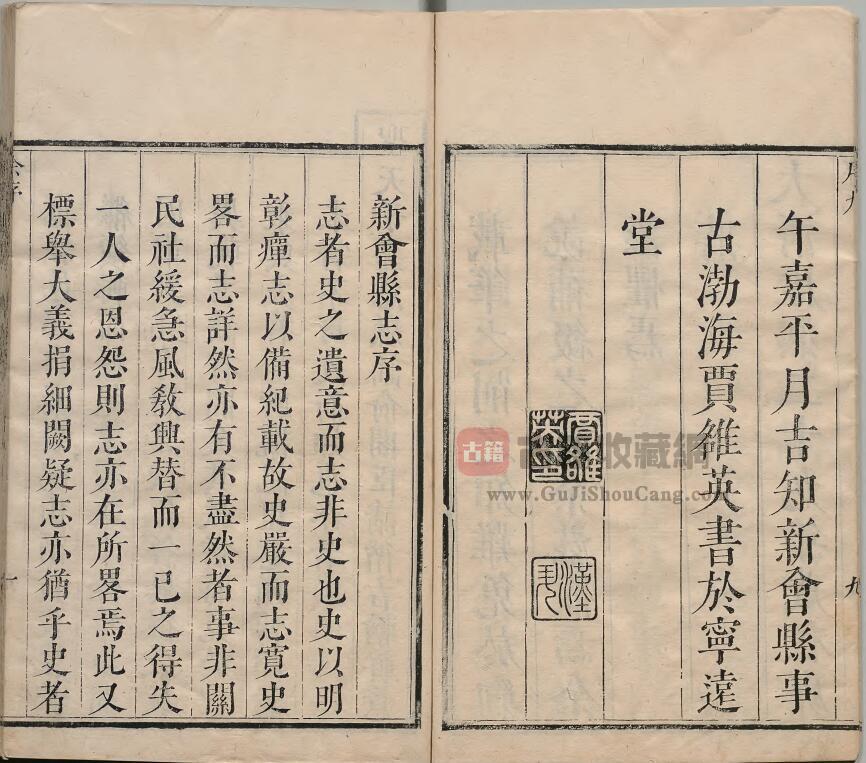 午嘉平月吉知新會縣事
古渤海賈雒英書於寧遠
堂
賈雒英印
漢
新會縣志序
志者史之遺意而志非史也史以明
彰癉志以備紀載故史嚴而志寛史
畧而志詳然亦有不盡然者事非關
民社緩急風教興替而一已之得失
一人之恩怨則志亦在所畧焉此又
標舉大義捐細闕疑志亦猶乎史者
序九
九
序
一
古籍
收藏網
www.GuJiShouCang.com